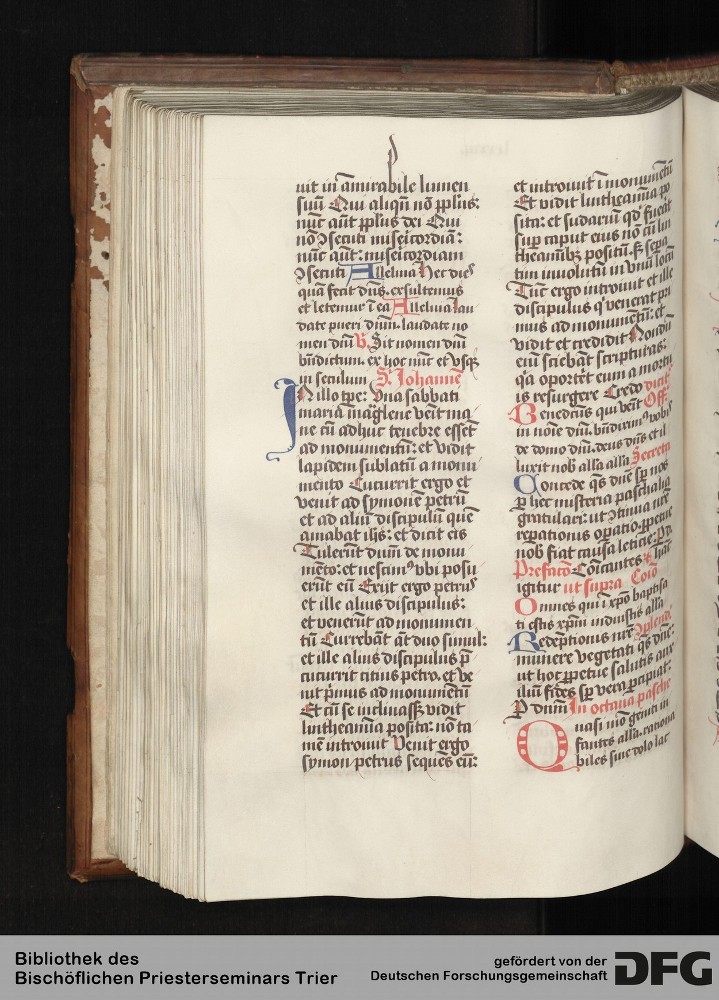 uit in āmirabile lumen
suū Qui aliqn̄ nō pp̄lus:
nūc aūt pp̄lus dei Qui
nō ↄsecuti misericordiā:
nūc aūt: misericordiam
ↄsecuti Alleluia Hec dies
quā fecit dn̄s. exsultemus
et letemur ī ea Alleluia Lau
date pueri dn̄m. laudate no
men dn̄i V. Sit nomen dn̄i
bn̄dictum. ex hoc nūc et vsqꝫ
in seculum S. Johannē
In illo tꝑe: Vna sabbati
maria magͣlene venit ma
ne cū adhuc tenebre essēt
ad monumentū: et vidit
lapidem sublatū a monu
mento Cucurrit ergo et
venit ad symonē petrū
et ad aliū discipulū quē
amabat ihs̄: et dicit eis
Tulerūt dn̄m de monu
mēto: et nescimꝰ vbi posu
erūt eū Exijt ergo petrus
et ille alius discipulus:
et venerūt ad monumen
tū Currebāt aūt duo simul:
et ille alius discipulus p̄
cucurrit citius petro. et ve
nit pͥmus ad monumētū
Et cū se inclinassꝫ vidit
lintheamīa posita: nō ta
mē introiuit Venit ergo
symon petrus sequēs eū:
et introiuit ī monumētū
Et vidit lintheamīa po
sita: et sudariū qd̄ fuerat
suꝑ caput eius nō cū lin
theamībꝫ positū. sꝫ sepa
tim inuolutū in vnū locū
Tūc ergo introiuit et ille
discipulus qͥ venerat pri
mus ad monumētū: et
vidit et credidit Nondū
eni sciebāt scripturas:
qͥa oportet eum a mortu
is resurgere Credo dicit̄
Benedictus qui venit Off̄
in noīe dn̄i. bn̄diximꝰ vobis
de domo dn̄i. deus dn̄s et il
luxit nob̄ alla alla Secreta
Concede qs̄ dn̄e sꝑ nos
ꝑ hec misteria paschalia
gratulari: vt ↄtinua nr̄e
reparationis oꝑatio. ꝑpetue
nob̄ fiat causa leticie. ꝑ d.
Prefaco Cōicantes & hāc
igitur ut supra Coīo
Omnes qui ī xp̄o baptisa
ti estis xp̄m induistis alla
Redemptionis nr̄e ↄplend̄
munere vegetati qs̄ dn̄e:
ut hoc ꝑpetue salutis aux
iliū fides sꝑ vera ꝑficiat:
P dn̄m In octaua pasche
Quasi mō geniti in
fantes alla. rationa
biles sine dolo lac
Bibliothek des
Bischöflichen Priesterseminars Trier
gefördert von der
Deutschen Forschungsgemeinschaft
DFG